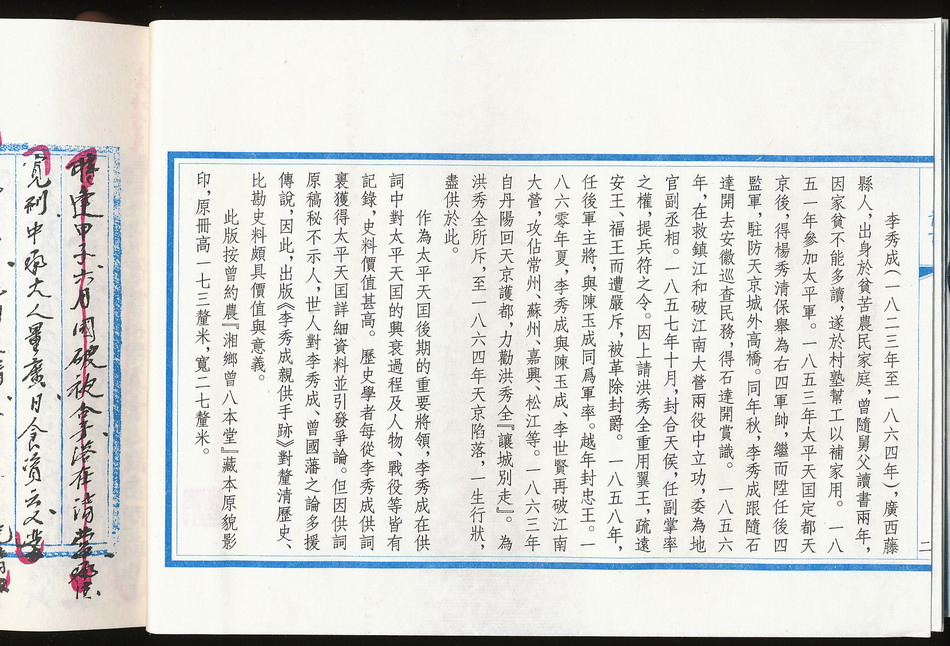 李秀成(一八二三年至一八六四年),廣西藤
縣人,出身於貧苦農民家庭,曾隨舅父讀書兩年,
因家貧不能多讀,遂於村塾幫工以補家用。一八
五一年參加太平軍。一八五三年太平天囯定都天
京後,得楊秀清保舉為右四軍帥,繼而陞任後四
監軍,駐防天京城外高橋。同年秋,李秀成跟隨石
達開去安徽巡查民務,得石達開賞識。一八五六
年,在救鎮江和破江南大營兩役中立功,委為地
官副丞相。一八五七年十月,封合天侯,任副掌率
之權,提兵符之令。因上請洪秀全重用翼王,疏遠
安王、福王而遭嚴斥,被革除封爵。一八五八年,
任後軍主將,與陳玉成同爲軍率。越年封忠王。一
八六零年夏,李秀成與陳玉成、李世賢再破江南
大營,攻佔常州、蘇州、嘉興、松江等。一八六三年
自丹陽回天京護都,力勸洪秀全『讓城別走』。為
洪秀全所斥,至一八六四年天京陷落,一生行狀,
盡供於此。
作為太平天囯後期的重要將領,李秀成在供
詞中對太平天囯的興衰過程及人物、戰役等皆有
記錄,史料價值甚高。歷史學者每從李秀成供詞
裏獲得太平天囯詳細資料並引發爭論。但因供詞
原稿秘不示人,世人對李秀成、曾國藩之論多援
傳說,因此,出版《李秀成親供手跡》對釐清歷史、
比勘史料頗具價值與意義。
此版按曾約農『湘鄉曾八本堂』藏本原貌影
印,原冊高一七三釐米,寬二七釐米。
二